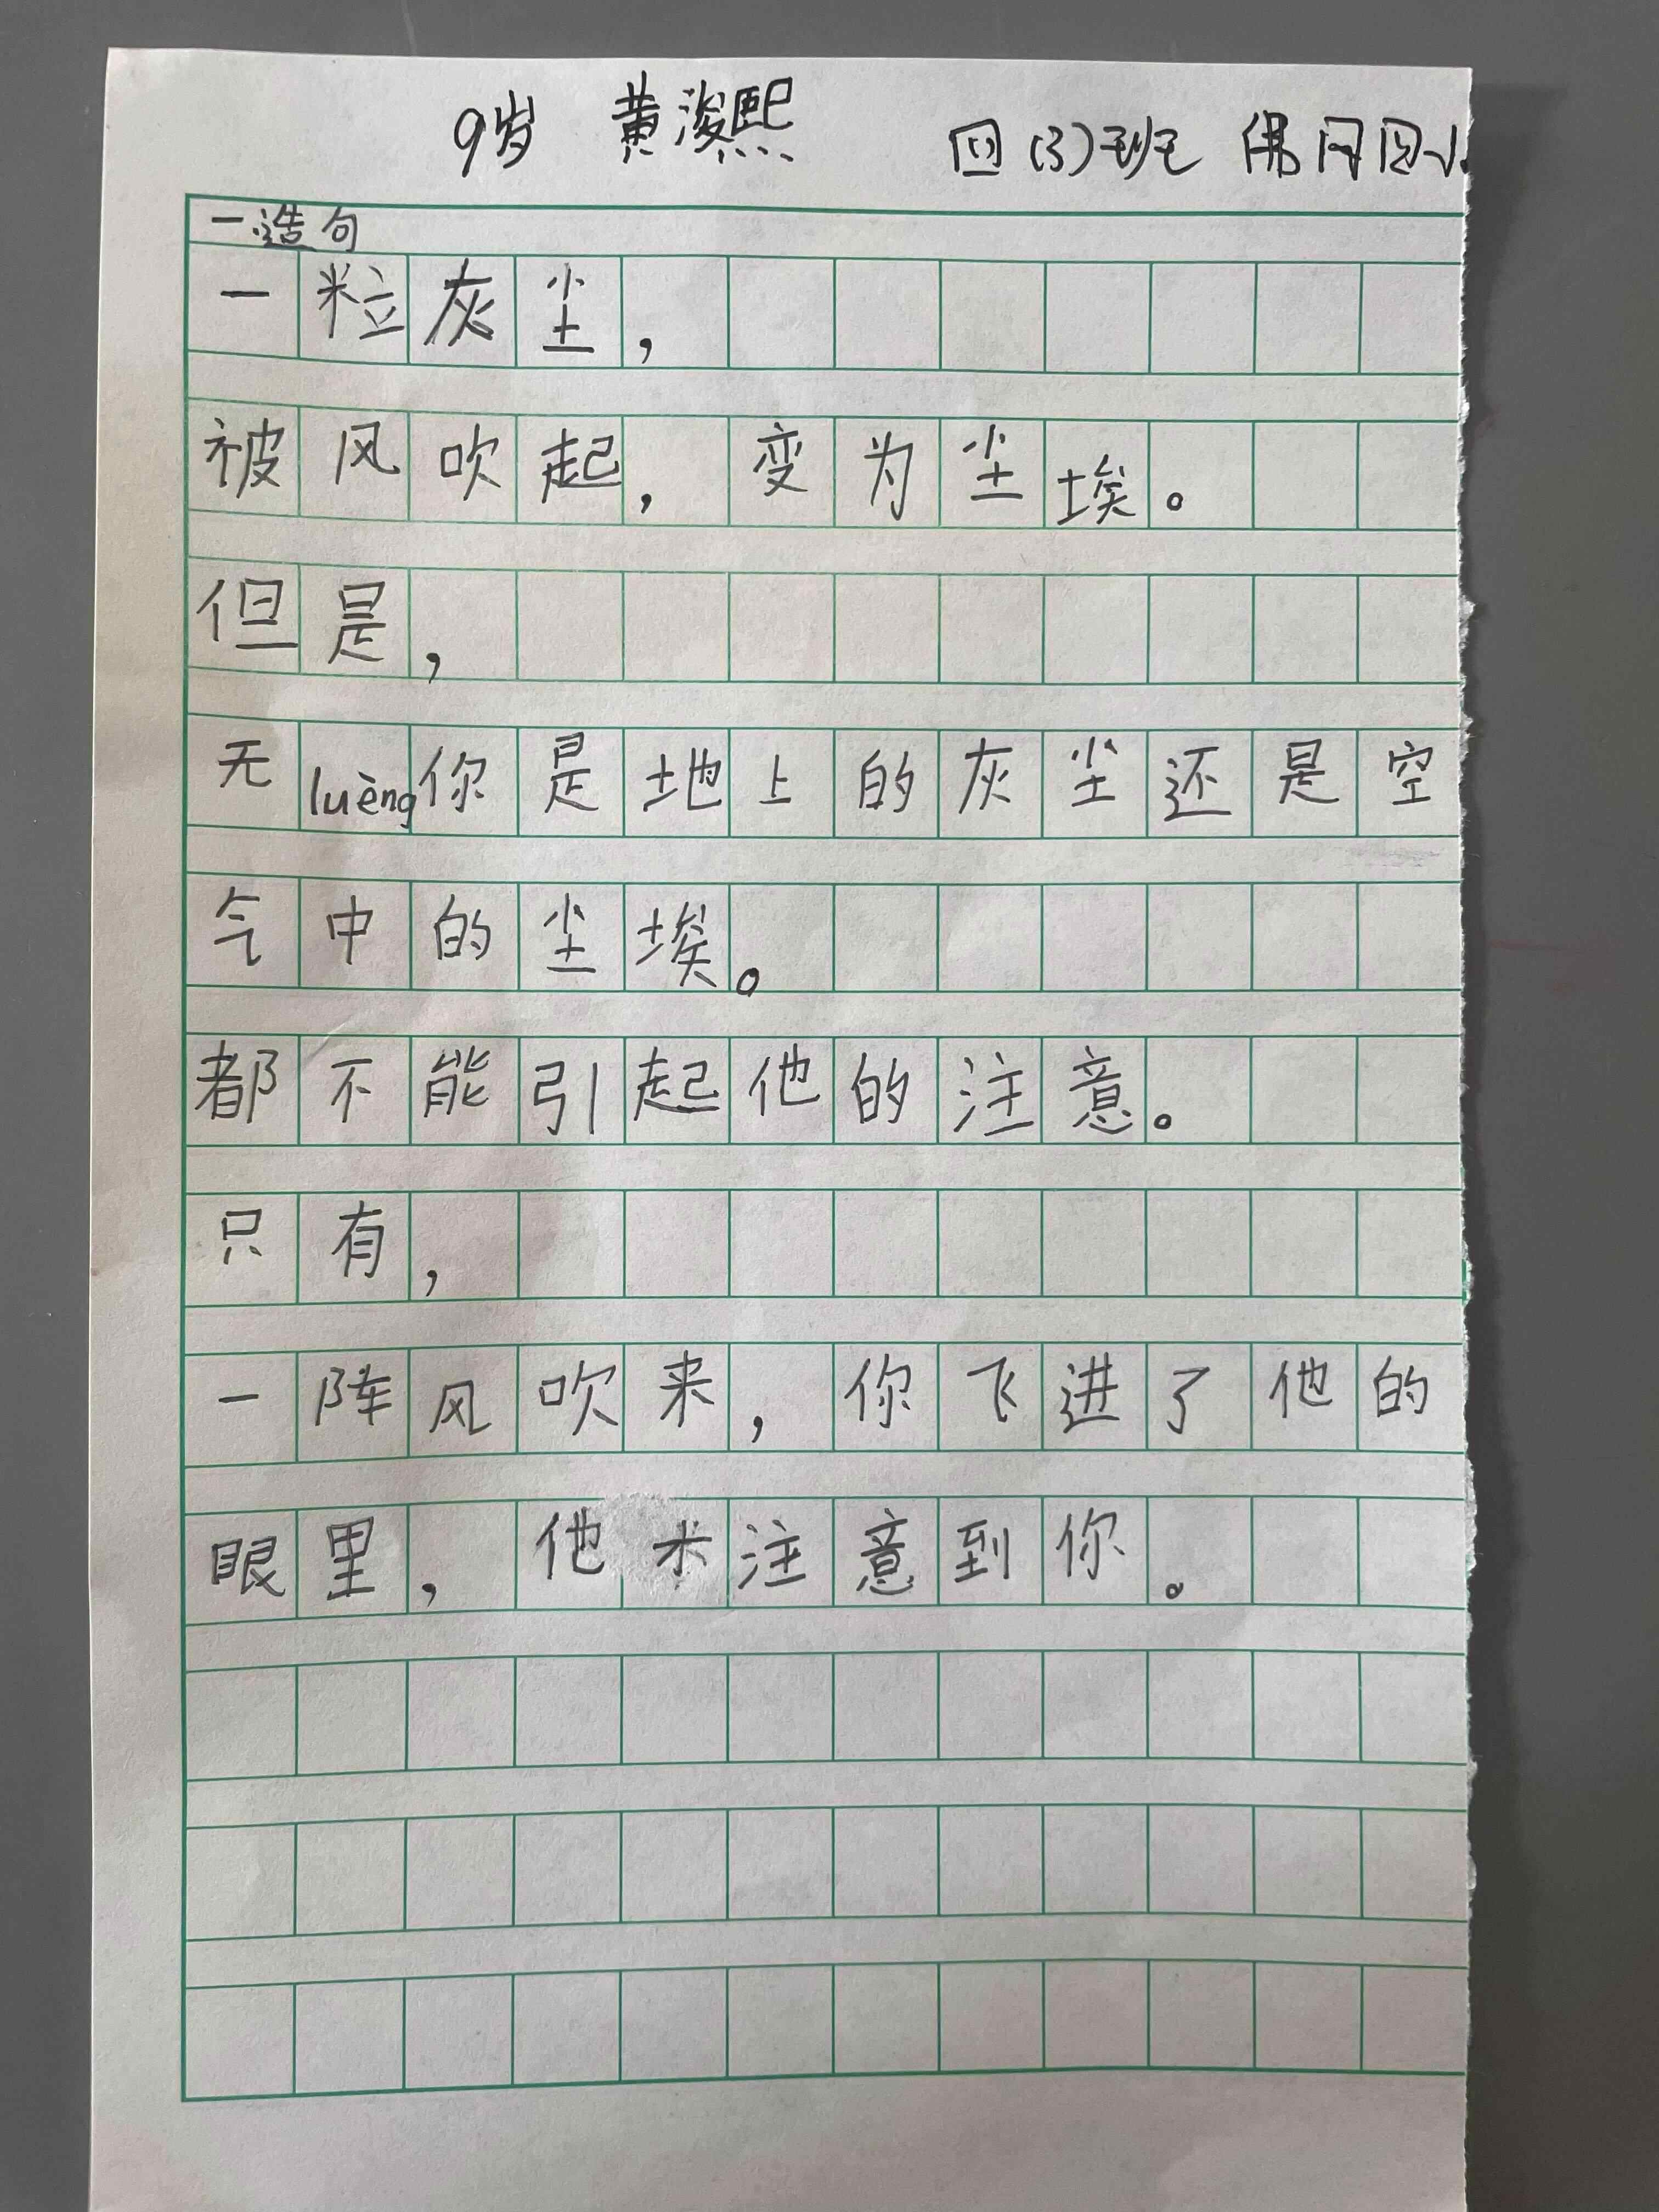 9岁 黄浚熙 四(3)班 佛冈四小
一.造句
一粒灰尘，
被风吹起，变为尘埃。
但是，
无luèng你是地上的灰尘还是空
气中的尘埃。
都不能引起他的注意。
只有，
一阵风吹来，你飞进了他的
眼里，他术注意到你。